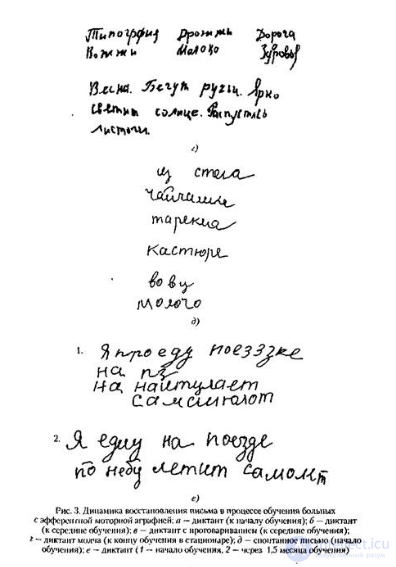 Типогрфия Дрожжи Дорога
Вожжи Молоко Здоровье
Весна. Бегут ручьи. Ярко
светит солнце. Распустлсь
листочки.
г)
из стела
тарекиа
кастюре
вову
молочо
д)
1. Я проеду поеззке
на пз
на наитулает
самсиюлот
2. Я еду на поезде
по небу летит самолт
е)
Рис. 3. Динамика восстановления письма в процессе обучения больных
с эфферентной моторной аграфией: а — диктант (к началу обучения); б — диктант
(к середине обучения); в — диктант с проговариванием (к середине обучения);
г — диктант молча (к концу обучения в стационаре); д — спонтанное письмо (начало
обучения); е — диктант (1 — начало обучения, 2 — через 1,5 месяца обучения)